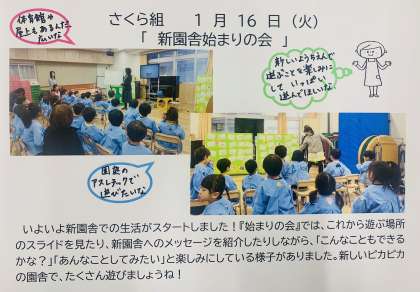 さくら組　　１月１６日（火）
「　新園舎始まりの会　」
体育館や
屋上もあるんだ。
広いな
新しいようちえんで
遊ぶことを楽しみに
して　いっぱい
遊んでほしいな!
園庭の
アスレチックで
遊びたいな
いよいよ新園舎での生活がスタートしました！『始まりの会』では、これから遊ぶ場所
のスライドを見たり、新園舎へのメッセージを紹介したりしながら、「こんなこともできる
かな？」「あんなことしてみたい」と楽しみにしている様子がありました。新しいピカピカ
の園舎で、たくさん遊びましょうね！